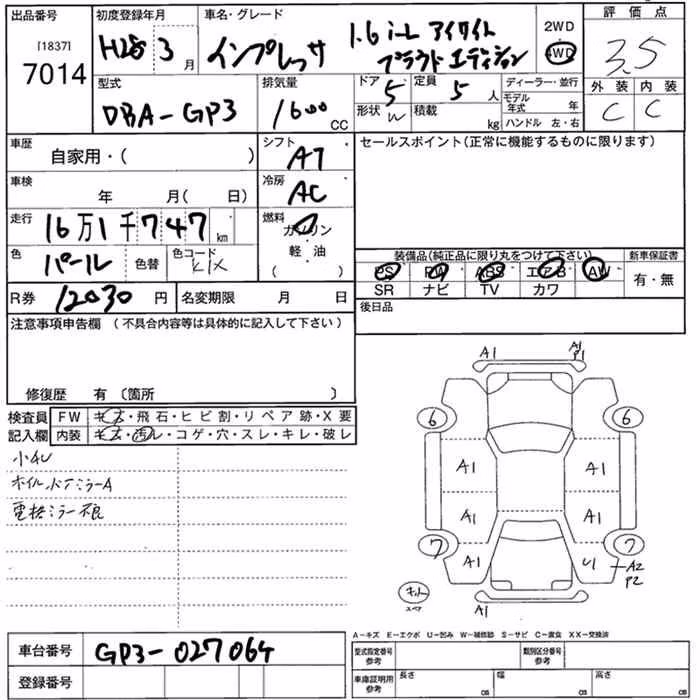 出品番号 初度登録年月 車名・グレード 2WD 評価点
[1837] H28 3月 インプレッサ 1.6i-L アイサイト 4WD 3.5
7014 プラウドエディション
外装 内装
C C
型式 排気量 ドア 5 定員 5人 ディーラー・並行
DBA-GP3 1600 CC 形状 W 積載 kg モデル年式 年
ハンドル 左・右
車歴 自家用・( ) シフト AT セールスポイント(正常に機能するものに限ります)
車検 年 月( 日) 冷房 AC
走行 16万1千747km 燃料 ガソリン
軽油
( )
色 パール 色替 色コード K1X
装備品(純正品に限り丸をつけて下さい) 新車保証書
PS PW ABS エアB AW 有・無
SR ナビ TV カワ
R券 12030円 名変期限 月 日 後日品
注意事項申告欄 (不具合内容等は具体的に記入して下さい)
修復歴 有 〔箇所 〕
検査員 FW キズ・飛石・ヒビ割・リペア跡・X要
記入欄 内装 キズ・汚レ・コゲ・穴・スレ・キレ・破レ
小キU
ホイル ドアミラーA
電格ミラー不良
A1 A1
P1
6 6
A1 A1
A1 A1
7 A1 U1 7
A2
P2
キット
A1
A-キズ E-エクボ U-凹み W-補修跡 S-サビ C-腐食 XX-交換済
車台番号 GP3-027064
登録番号
型式指定番号 参考 類別区分番号 参考
車庫証明用 参考 長さ cm 幅 cm 高さ cm